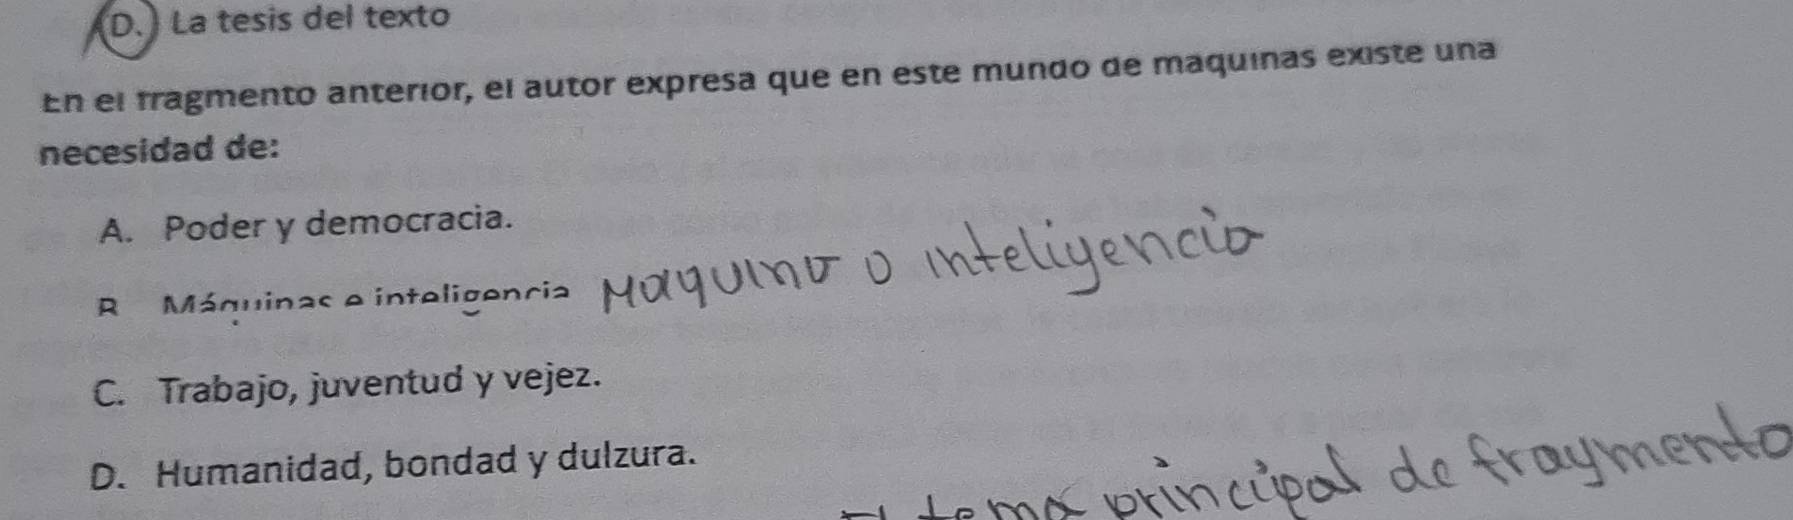 D. La tesis del texto
En el fragmento anterior, el autor expresa que en este mundo de maquinas existe una
necesidad de:
A. Poder y democracia.
B Máquinas e inteligencia Maquina o inteligencia
C. Trabajo, juventud y vejez.
D. Humanidad, bondad y dulzura.
tema principal de fragmento